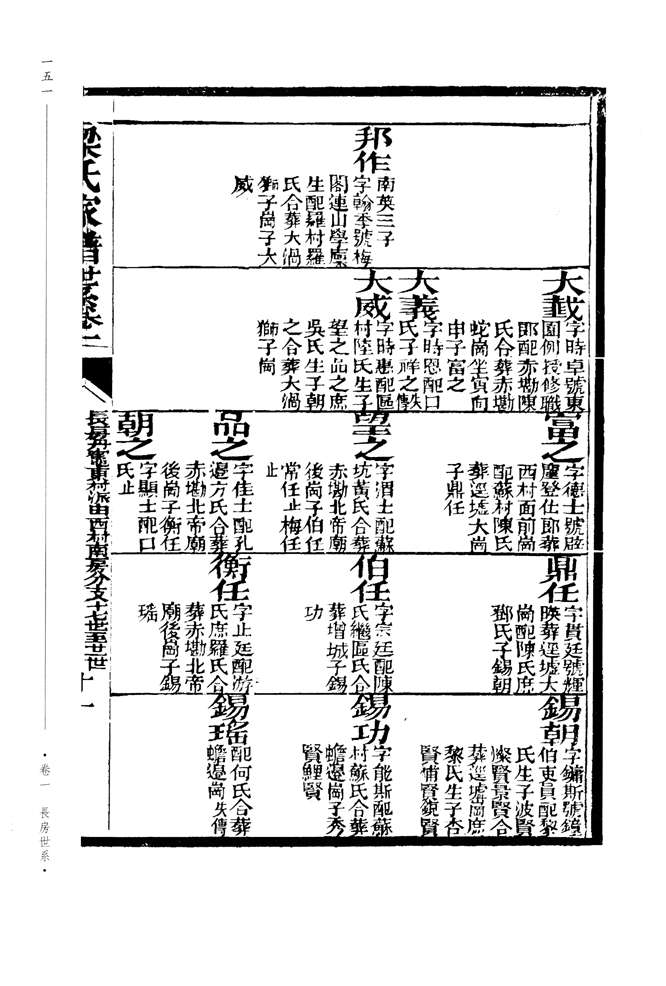 邦作
南英三子
字翰季號梅
閣連山學廩
生配羅村羅
氏合葬大渦
獅子崗子大
威
大載
字時卓號東
園例授修職
郎配赤坎陳
氏合葬赤磡
蛇崗坐寅向
申子富之
大義
字時恩配口
氏子祥之軼
大威
字時惠配區
村陸氏生子
望之品之庶
吳氏生子朝
之合葬大渦
獅子崗
富之
字德士號辟
塵登仕郎葬
西村面前崗
配蘇村陳氏
葬逕墟大崗
子鼎任
望之
字渭士配蘇
坑黃氏合葬
赤磡北帝廟
後崗子伯任
常任止梅任
止
品之
字佳士配孔
邊方氏合葬
赤磡北帝廟
後崗子衡任
朝之
字顯士配口
氏止
鼎任
字貫廷號輝
暎葬逕墟大
崗配陳氏庶
鄧氏子錫朝
伯任
字宗廷配陳
氏繼區氏合
葬增城子錫
功
衡任
字止廷配游
氏庶羅氏合
葬赤磡北帝
廟後崗子錫
瑤
錫朝
字鏞斯號鐘
伯吏員配黎
氏生子波賢
燦賢景賢合
葬逕墟崗庶
黎氏生子杏
賢補賢銳賢
錫功
字能斯配蘇
村蘇氏合葬
蟾邊崗子秀
賢鯉賢
錫瑤
配何氏合葬
蟾邊崗失傳
梁氏家譜世系卷一
長房九竜黃村派由西村南房分支十七世至廿一世
十一
一五一
·卷一 長房世系·